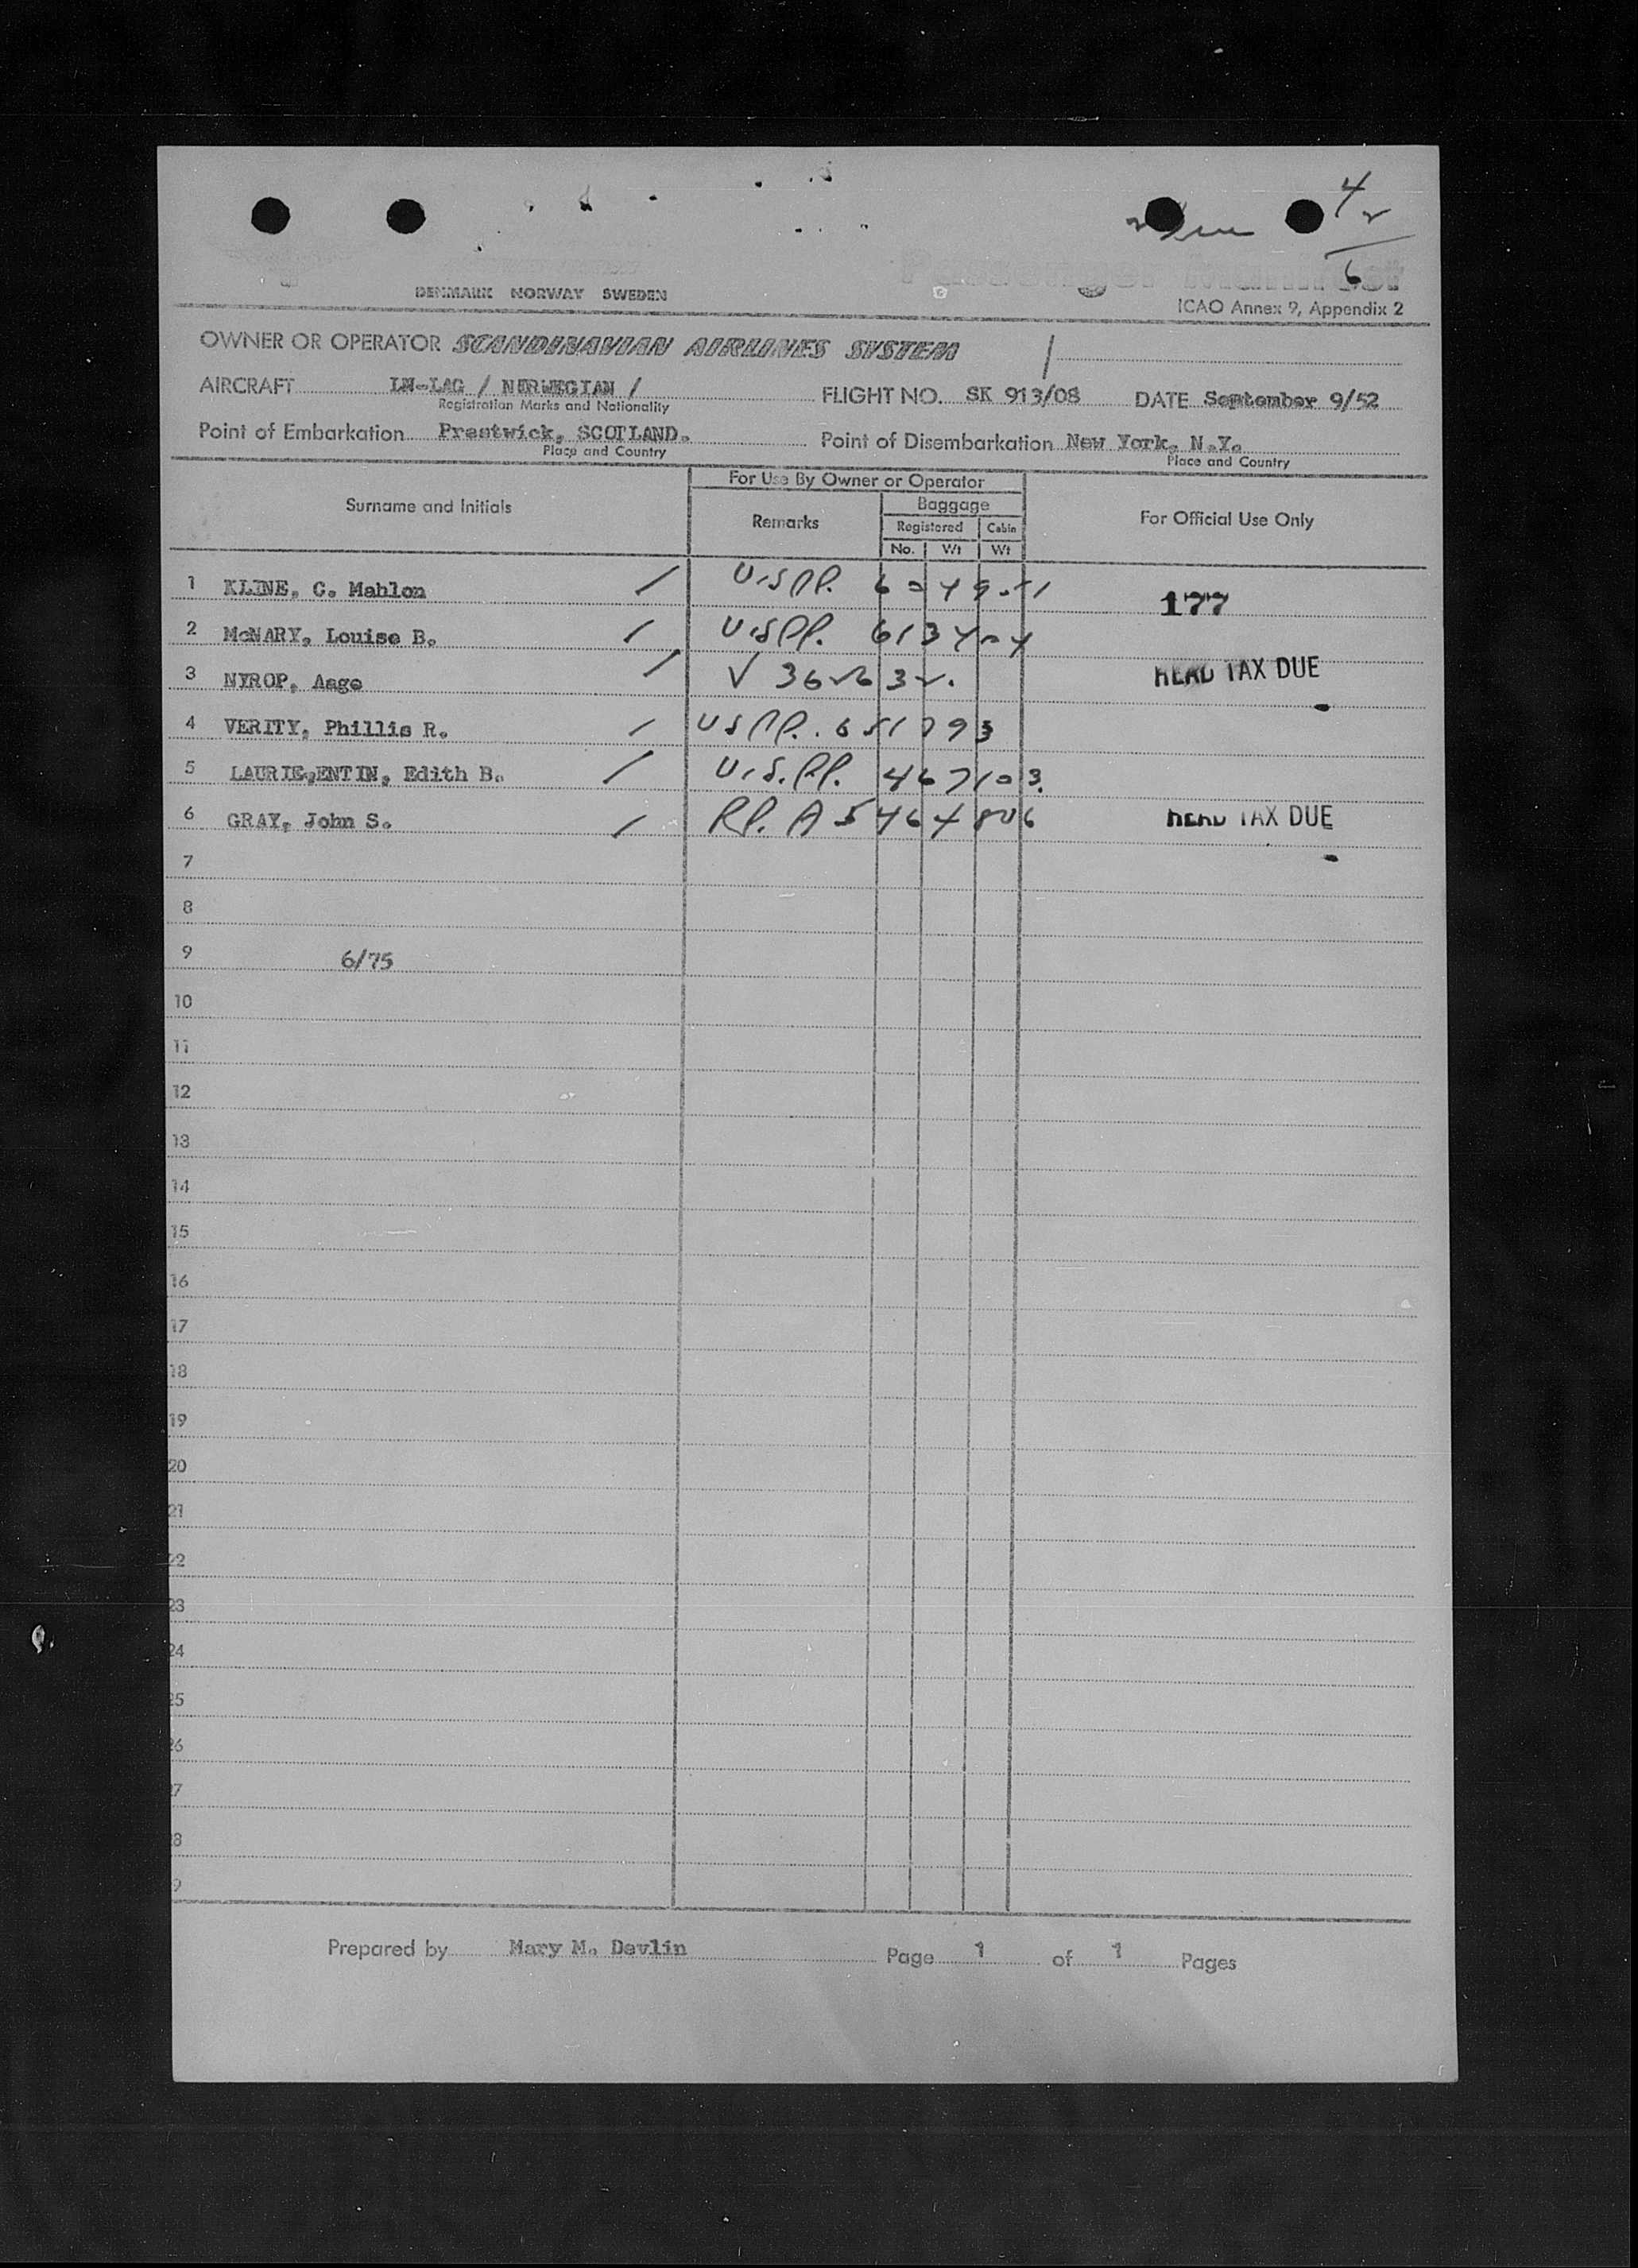 4
2
6
Passenger Manifest
DENMARK NORWAY SWEDEN
ICAO Annex 9, Appendix 2
OWNER OR OPERATOR SCANDINAVIAN AIRLINES SYSTEM
AIRCRAFT LN-LAG / NERWEGIAN / FLIGHT NO. SK 913/08 DATE September 9/52
Registration Marks and Nationality
Point of Embarkation Prestwick, SCOTLAND. Point of Disembarkation New York, N.Y.
Place and Country Place and Country
For Use By Owner or Operator
Surname and Initials Remarks Baggage For Official Use Only
Registered Cabin
No. Wt Wt
1 KLINE, C. Mahlon / U.S PP. 177
2 McNARY, Louise B. / U.S PP.
3 NYROP, Aage / V HEAD TAX DUE
4 VERITY, Phillis R. / U S PP. 651793
5 LAURIE,ENTIN, Edith B. / U.S. PP. 467103.
6 GRAY, John S. / HEAD TAX DUE
7
8
9 6/75
10
11
12
13
14
15
16
17
18
19
20
21
22
23
24
25
26
27
28
29
Prepared by Mary M. Devlin Page 1 of 1 Pages